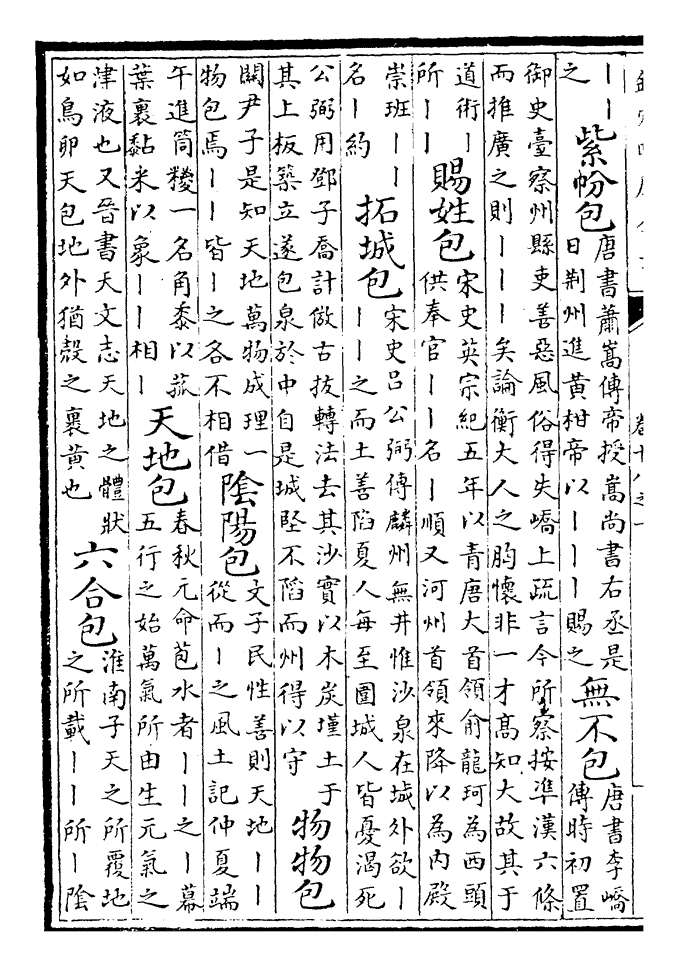 ｜｜
之
紫帉包
唐書蕭嵩傳帝授嵩尚書右丞是
日荆州進黃柑帝以｜｜｜賜之
無不包
唐書李嶠
傳時初置
御史臺察州縣吏善惡風俗得失嶠上疏言今所察按準漢六條
而推廣之則｜｜｜矣論衡大人之胸懷非一才高知大故其于
道術｜
所｜｜
賜姓包
宋史英宗紀五年以青唐大首領俞龍珂為西頭
供奉官｜｜名｜順又河州首領來降以為內殿
崇班｜｜
名｜約
拓城包
宋史呂公弼傳麟州無井惟沙泉在城外欲｜
｜｜之而土善陷夏人每至圍城人皆憂渴死
公弼用鄧子喬計倣古拔轉法去其沙實以木炭墐土于
其上板築立遂包泉於中自是城堅不陷而州得以守
物物包
關尹子是知天地萬物成理一
物包焉｜｜皆｜之各不相借
陰陽包
文子民性善則天地｜｜
從而｜之風土記仲夏端
午進筒糉一名角黍以菰
葉裹黏米以象｜｜相｜
天地包
春秋元命苞水者｜｜之｜幕
五行之始萬氣所由生元氣之
津液也又晉書天文志天地之體狀
如鳥卵天包地外猶殼之裹黃也
六合包
淮南子天之所覆地
之所載｜｜所｜陰